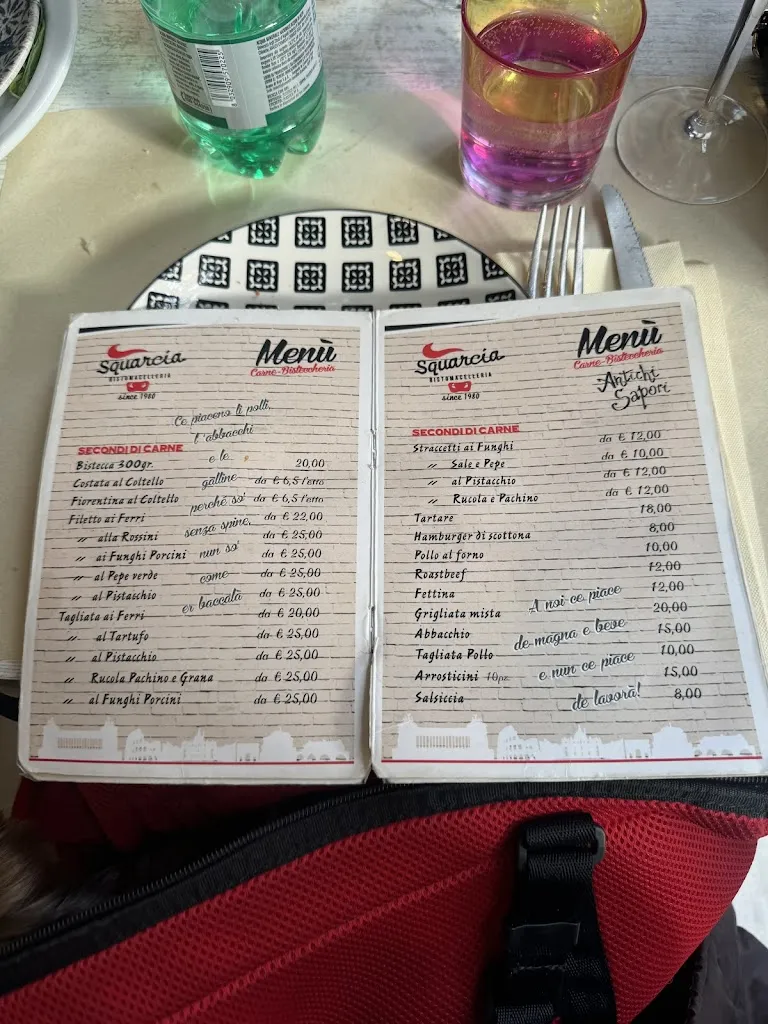 Squarcia
BISTOMACELLERIA
since 1980
Menù
Carne-Bisteccheria
Ce piaceno li polli,
l'abbacchi
e le
galline
perché so'
senza spine,
nun so'
come
er baccalà
SECONDI DI CARNE
Bistecca 300gr. 20,00
Costata al Coltello da € 6,5 l'etto
Fiorentina al Coltello da € 6,5 l'etto
Filetto ai Ferri da € 22,00
〃 alla Rossini da € 25,00
〃 ai Funghi Porcini da € 25,00
〃 al Pepe verde da € 25,00
〃 al Pistacchio da € 25,00
Tagliata ai Ferri da € 20,00
〃 al Tartufo da € 25,00
〃 al Pistacchio da € 25,00
〃 Rucola Pachino e Grana da € 25,00
〃 al Funghi Porcini da € 25,00
Squarcia
BISTOMACELLERIA
since 1980
Menù
Carne-Bisteccheria
Antichi
Sapori
SECONDI DI CARNE
Straccetti ai Funghi da € 12,00
〃 Sale e Pepe da € 10,00
〃 al Pistacchio da € 12,00
〃 Rucola e Pachino da € 12,00
Tartare 18,00
Hamburger di scottona 8,00
Pollo al forno 10,00
Roastbeef 12,00
Fettina 12,00
Grigliata mista 20,00
Abbacchio 15,00
Tagliata Pollo 10,00
Arrosticini 10pz. 15,00
Salsiccia 8,00
A noi ce piace
de magna e beve
e nun ce piace
de lavorà!